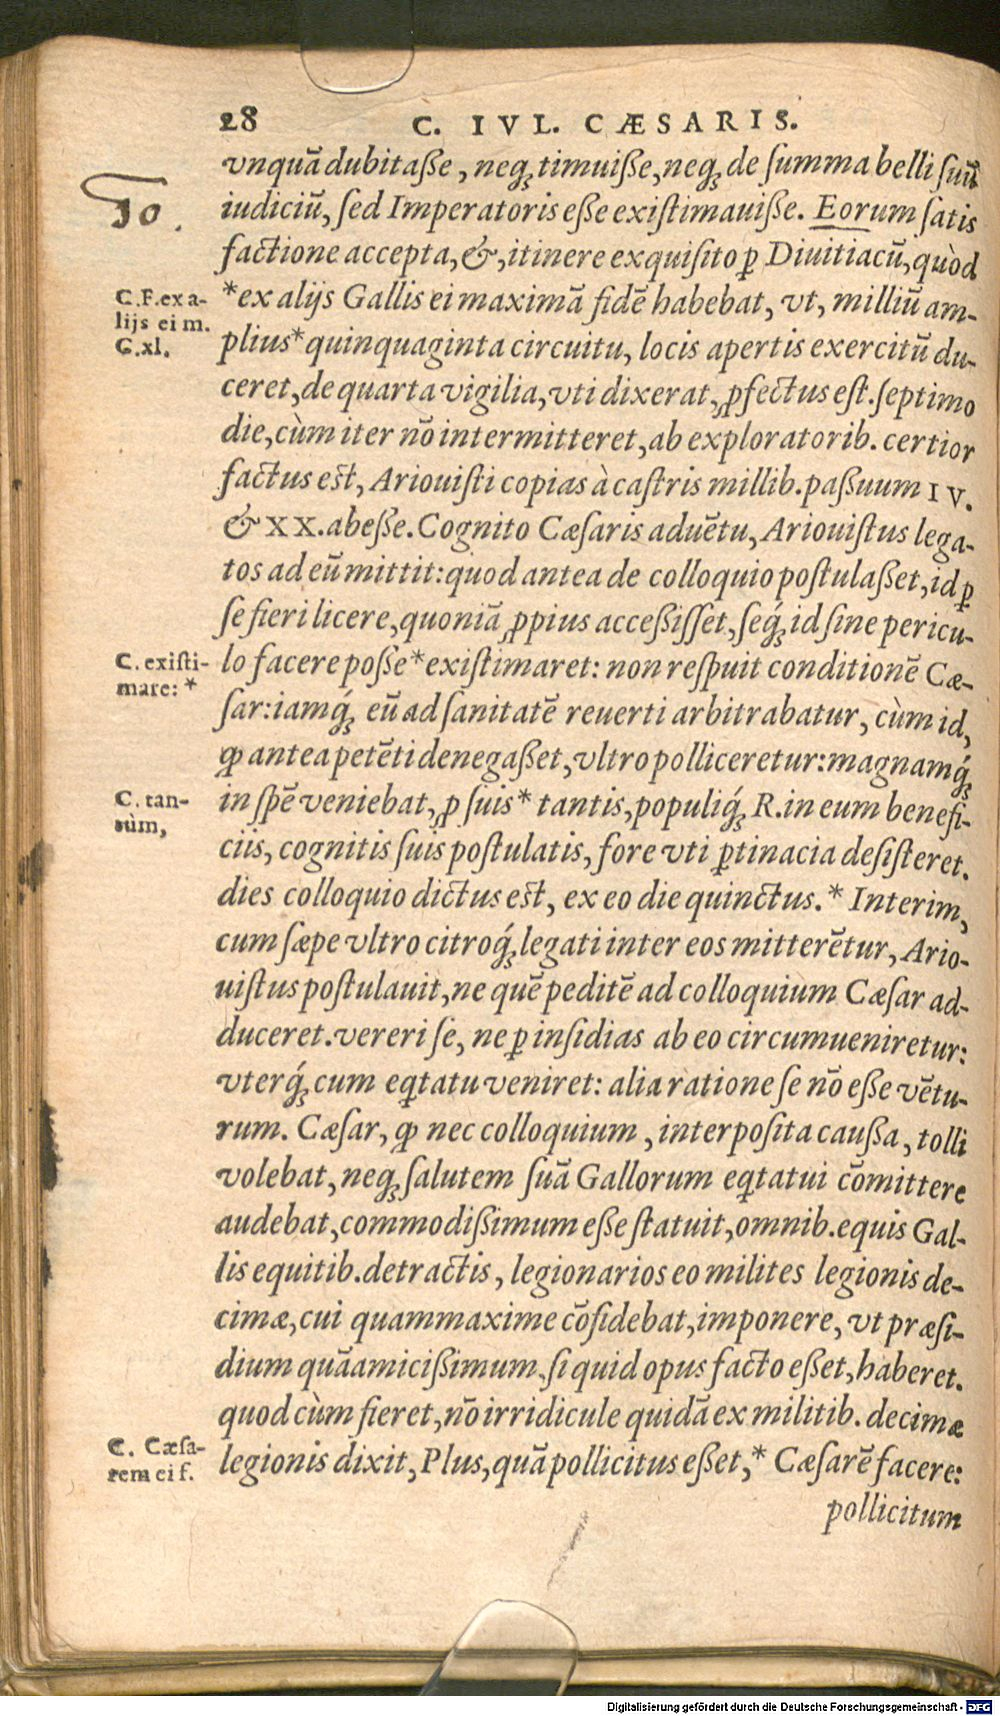 28 C. IVL. CÆSARIS.
vnquā dubitaße, neqꝫ timuiße, neqꝫ de ſumma belli ſuū
iudiciū, ſed Imperatoris eße exiſtimauiße. Eorum ſatis
factione accepta, &, itinere exquiſito ꝑ Diuitiacū, quòd
*ex alijs Gallis ei maximā fidē habebat, vt, milliū am-
plius* quinquaginta circuitu, locis apertis exercitū du-
ceret, de quarta vigilia, vti dixerat, ꝓfectus eſt. ſeptimo
die, cùm iter nō intermitteret, ab exploratorib. certior
factus est, Ariouiſti copias à caſtris millib. paßuum IV.
& XX. abeße. Cognito Cæſaris aduētu, Ariouiſtus lega-
tos ad eū mittit: quod antea de colloquio poſtulaßet, id ꝑ
ſe fieri licere, quoniā ꝓpius acceßiſſet, ſeqꝫ́ id ſine pericu-
lo facere poſſe* exiſtimaret: non reſpuit conditionē Cæ-
ſar: iamqꝫ́ eū ad ſanitatē reuerti arbitrabatur, cùm id,
ꝙ antea petēti denegaßet, vltro polliceretur: magnamqꝫ́
in ſpē veniebat, ꝓ ſuis* tantis, populiqꝫ́ R. in eum benefi-
ciis, cognitis ſuis poſtulatis, fore vti ꝑtinacia deſiſteret.
dies colloquio dictus est, ex eo die quinctus.* Interim,
cum ſæpe vltro citroqꝫ́ legati inter eos mitterētur, Ario-
uiſtus poſtulauit, ne quē peditē ad colloquium Cæſar ad-
duceret. vereri ſe, ne ꝑ inſidias ab eo circumueniretur:
vterqꝫ́ cum eq̃tatu veniret: alia ratione ſe nō eße vētu-
rum. Cæſar, ꝙ nec colloquium, interpoſita caußa, tolli
volebat, neqꝫ ſalutem ſuā Gallorum eq̃tatui cōmittere
audebat, commodißimum eße ſtatuit, omnib. equis Gal-
lis equitib. detractis, legionarios eo milites legionis de-
cimæ, cui quammaxime cōfidebat, imponere, vt præſi-
dium quāamicißimum, ſi quid opus facto eßet, haberet.
quod cùm fieret, nō irridicule quidā ex militib. decimæ
legionis dixit, Plus, quā pollicitus eßet,* Cæſarē facere:
pollicitum
30.
C. F. ex a-
lijs ei m.
G. xl.
C. exiſti-
mare: *
C. tan-
tùm,
C. Cæſa-
rem ei f.
Digitalisierung gefördert durch die Deutsche Forschungsgemeinschaft - DFG